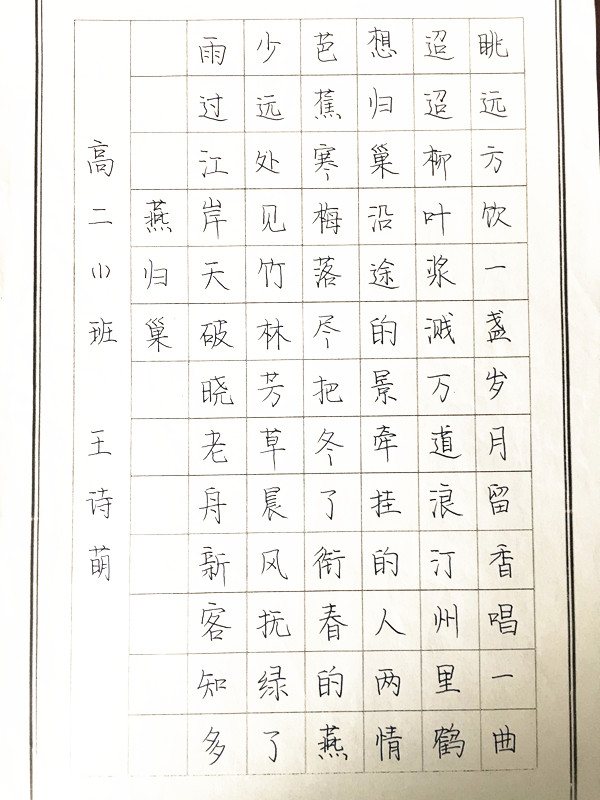 高二（1）班 王诗萌
燕归巢
雨过江岸天破晓老舟新客知多
少远处见竹林芳草晨风抚绿了
芭蕉寒梅落尽把冬了衔春的燕
想归巢沿途的景牵挂的人两情
迢迢柳叶浆溅万道浪汀州里鹤
眺远方饮一盏岁月留香唱一曲